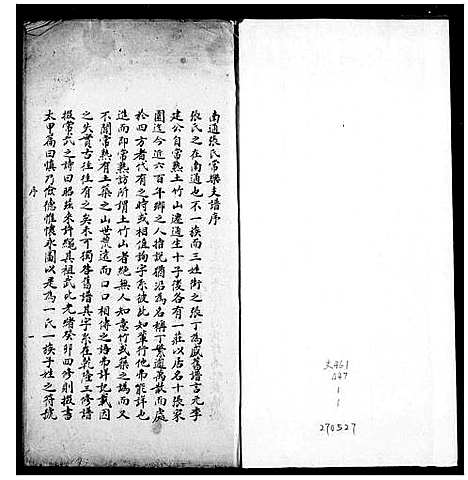 南通張氏常樂支譜序
張氏之在南通也不一族而三姓街之張丁為盛舊譜言元季
建公自常熟土竹山遷通生十子後各有一莊以居名十張家
園迄今近六百年鄉之人指說猶沿為名稱丁繁遍萬散而處
於四方者代有之時或相值詢字系彼此知輩行他弗能詳也
進而即常熟訪所謂土竹山者絕無人知意竹或築之譌而又
不聞常熟有土築之山世荒遠而口口相傳之語弗詳記載因
之失實古往往有之矣未可獨咎舊譜其字系在乾隆三修譜
掇常武之詩曰昭茲來許繩其祖武此光緒癸卯四修則掇書
太甲篇曰慎乃儉德惟懷永圖以是為一氏一族子姓之符號
序
一
史461
447
1
1
270527